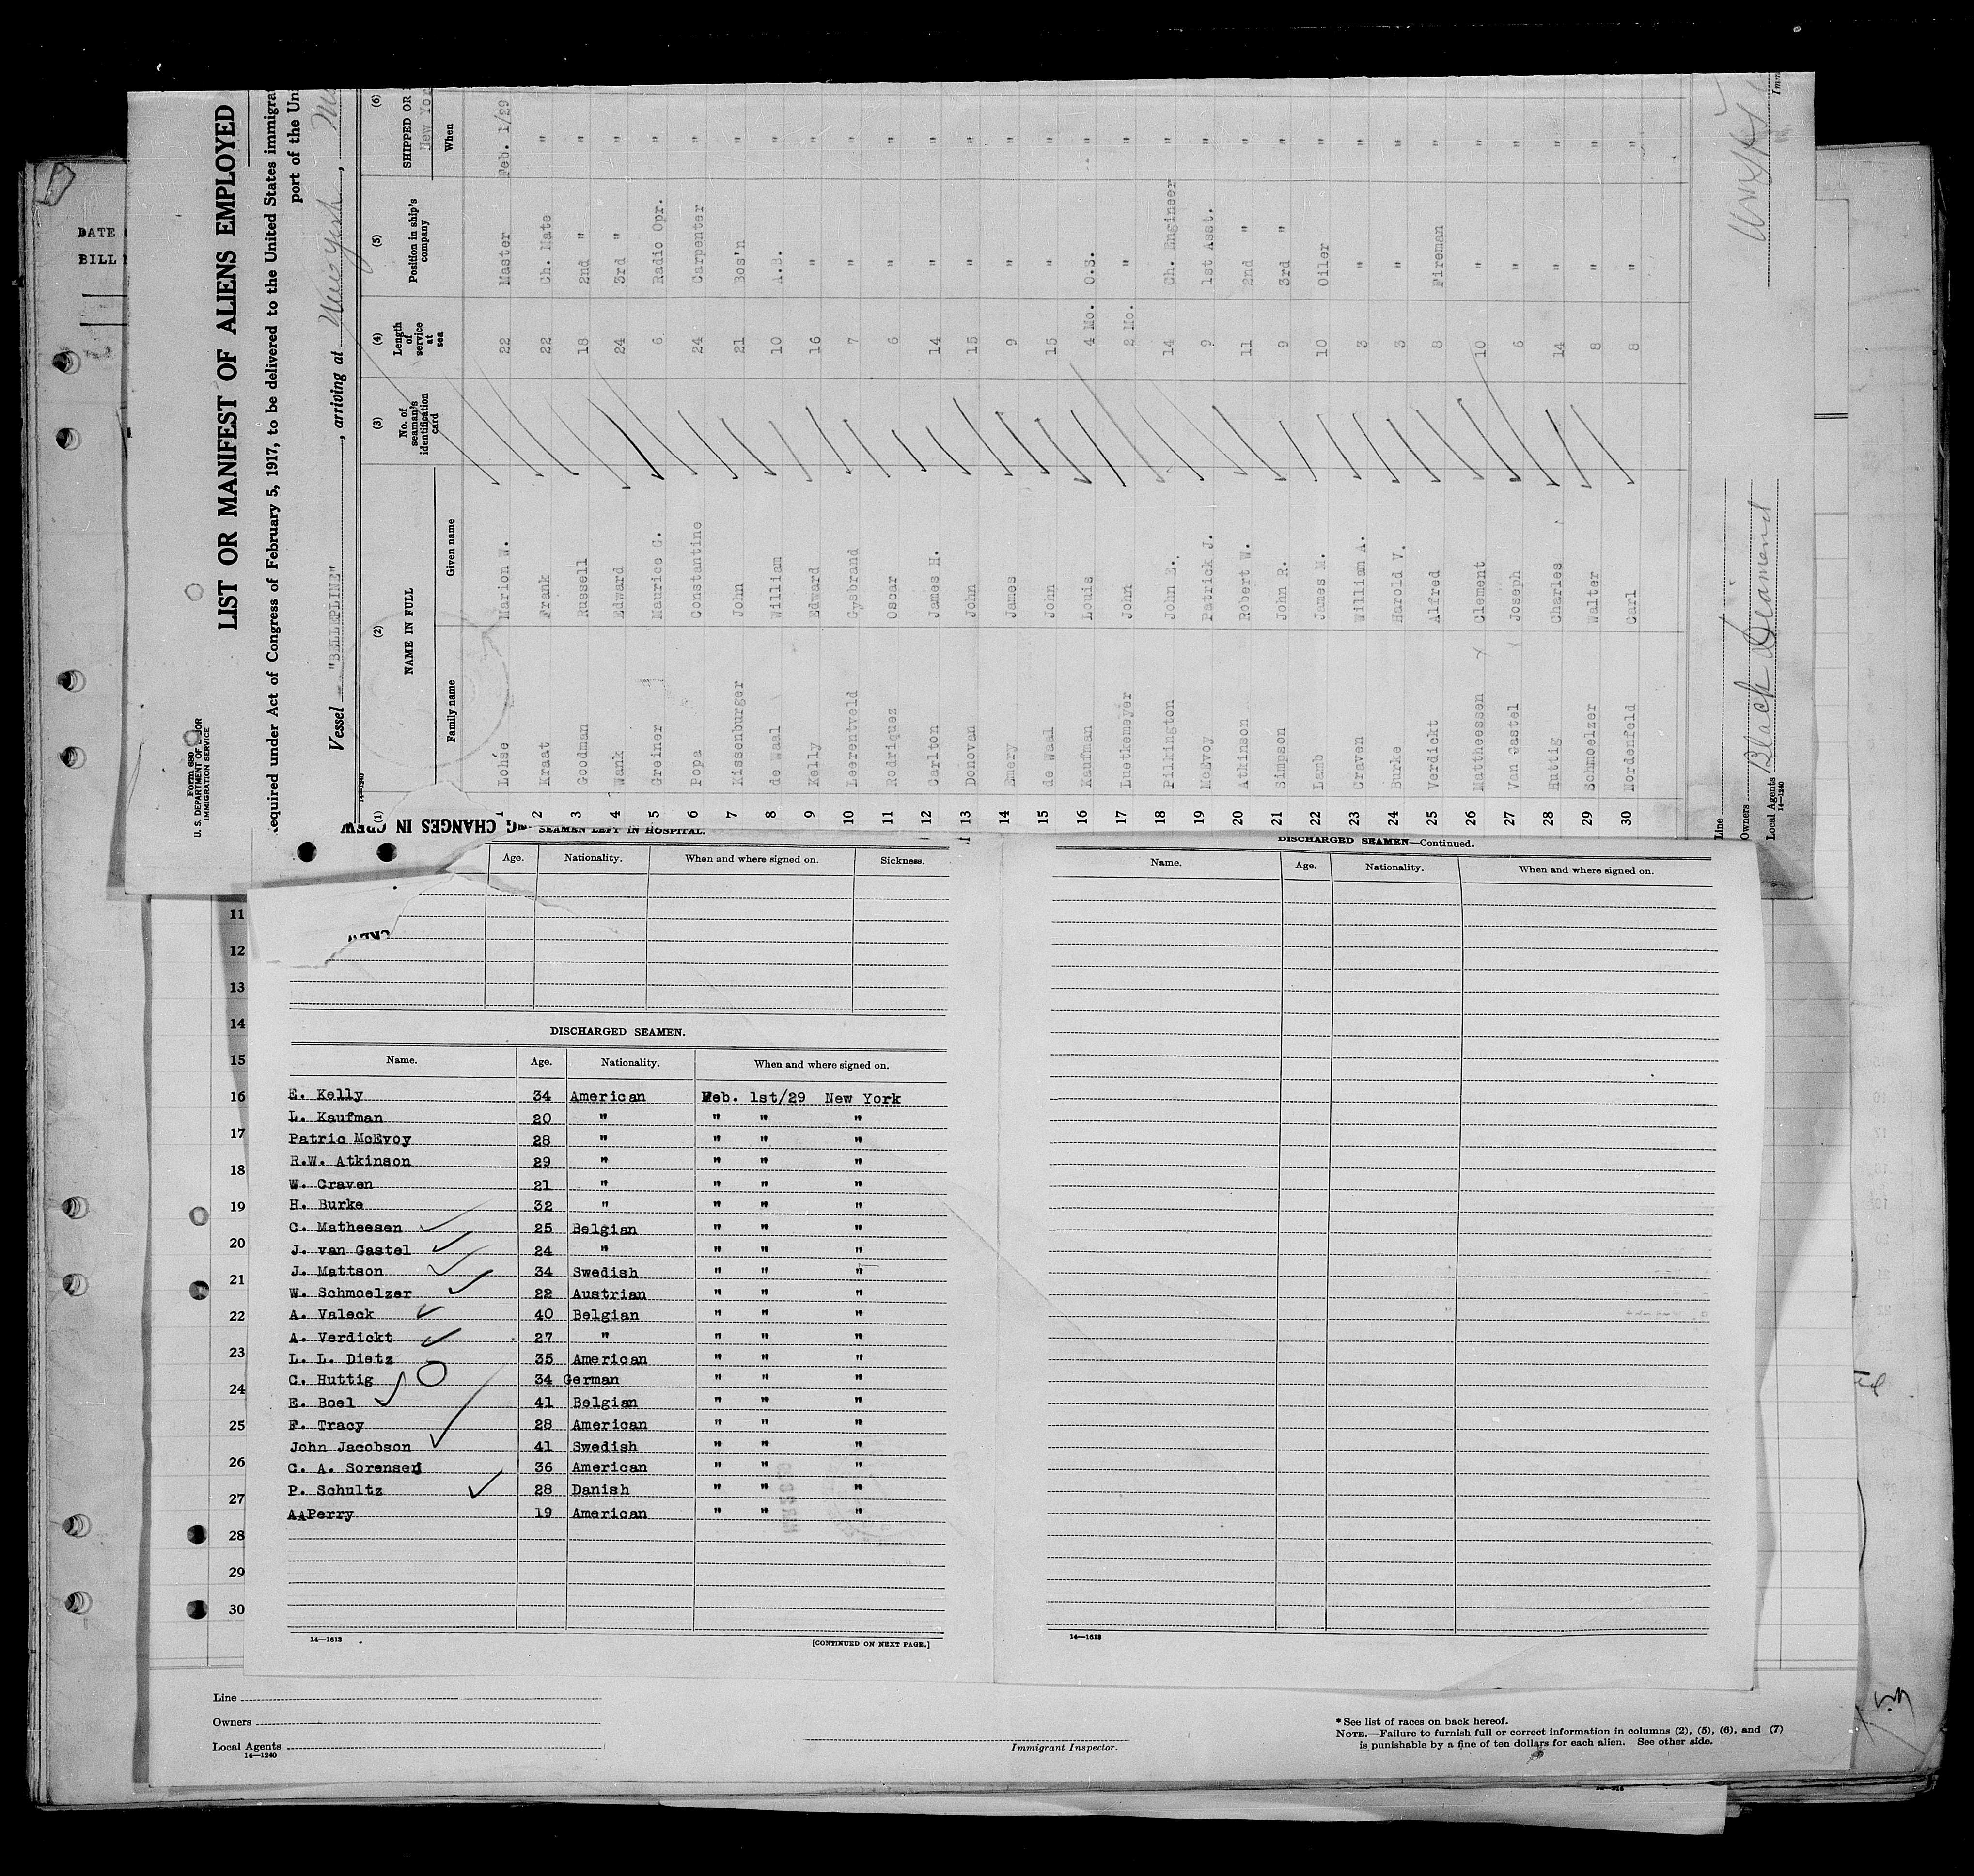 DATE
BILL
Form 680
U. S. DEPARTMENT OF LABOR
IMMIGRATION SERVICE
LIST OR MANIFEST OF ALIENS EMPLOYED
equired under Act of Congress of February 5, 1917, to be delivered to the United States immigrat
port of the Uni
Vessel "BELLEPLINE", arriving at New York,
14—1240
(1) (2) (3) (4) (5) (6)
NAME IN FULL
No. of seaman's identification card
Length of service at sea
Position in ship's company
SHIPPED OR
New Yor
Family name Given name When
1 Lohse Marion W. 22 Master Feb. 1/29
2 Kraat Frank 22 Ch. Mate "
3 Goodman Russell 18 2nd " "
4 Wank Edward 24 3rd " "
5 Greiner Maurice G. 6 Radio Opr. "
6 Popa Constantine 24 Carpenter "
7 Kissenburger John 21 Bos'n "
8 de Waal William 10 A.B. "
9 Kelly Edward 16 " "
10 Leerentveld Gysbrand 7 " "
11 Rodriquez Oscar 6 " "
12 Carlton James H. 14 " "
13 Donovan John 15 " "
14 Emery James 9 " "
15 de Waal John 15 " "
16 Kaufman Louis 4 Mo. O.S. "
17 Luetkemeyer John 2 Mo. " "
18 Pilkington John E. 14 Ch. Engineer "
19 McEvoy Patrick J. 9 1st Asst. "
20 Atkinson Robert W. 11 2nd " "
21 Simpson John R. 9 3rd " "
22 Lamb James M. 10 Oiler "
23 Craven William A. 3 " "
24 Burke Harold V. 3 " "
25 Verdickt Alfred 8 Fireman "
26 Mattheessen Clement 10 " "
27 Van Gastel Joseph 6 " "
28 Huttig Charles 14 " "
29 Schmoelzer Walter 8 " "
30 Nordenfeld Carl 8 " "
Line
Owners
Local Agents Black Diamond
14—1240
Imm
G CHANGES IN CREW
SEAMEN LEFT IN HOSPITAL.
Age. Nationality. When and where signed on. Sickness.
CREW
DISCHARGED SEAMEN.
Name. Age. Nationality. When and where signed on.
E. Kelly 34 American Feb. 1st/29 New York
L. Kaufman 20 " " " "
Patric McEvoy 28 " " " "
R.W. Atkinson 29 " " " "
W. Craven 21 " " " "
H. Burke 32 " " " "
C. Matheesen 25 Belgian " " "
J. van Gastel 24 " " " "
J. Mattson 34 Swedish " " "
W. Schmoelzer 22 Austrian " " "
A. Valeck 40 Belgian " " "
A. Verdickt 27 " " " "
L. L. Dietz 35 American " " "
C. Huttig 34 German " " "
E. Boel 41 Belgian " " "
F. Tracy 28 American " " "
John Jacobson 41 Swedish " " "
C. A. Sorensen 36 American " " "
P. Schultz 28 Danish " " "
A. Perry 19 American " " "
14—1613
[CONTINUED ON NEXT PAGE.]
DISCHARGED SEAMEN—Continued.
Name. Age. Nationality. When and where signed on.
14—1613
11
12
13
14
15
16
17
18
19
20
21
22
23
24
25
26
27
28
29
30
Line
Owners
Local Agents
14—1240
Immigrant Inspector.
* See list of races on back hereof.
NOTE.—Failure to furnish full or correct information in columns (2), (5), (6), and (7)
is punishable by a fine of ten dollars for each alien. See other side.